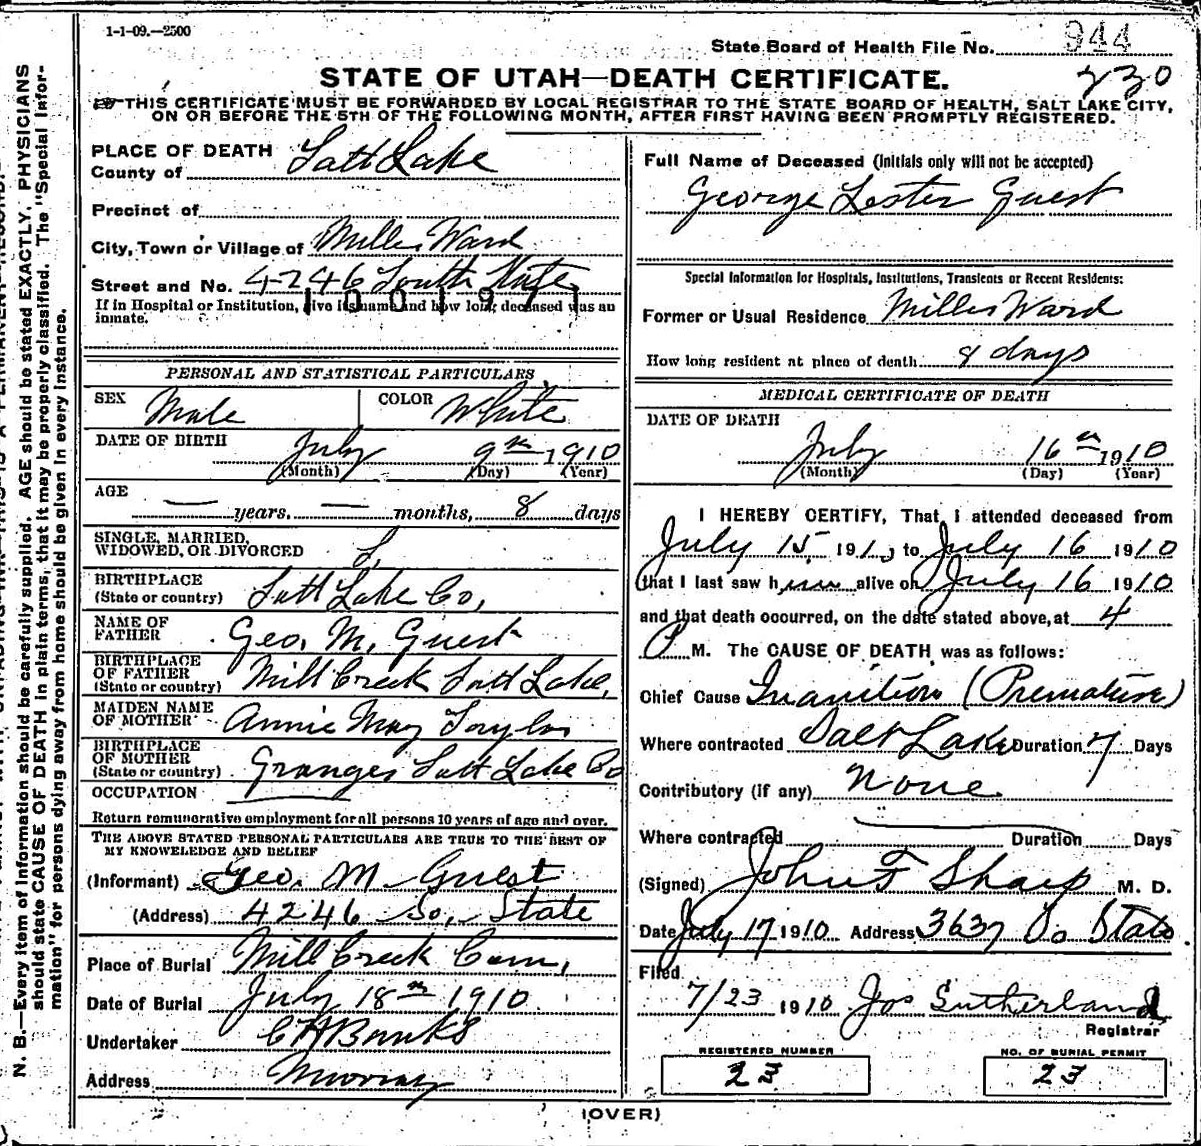 1-1-09.—2500
State Board of Health File No. 944
230
STATE OF UTAH—DEATH CERTIFICATE.
THIS CERTIFICATE MUST BE FORWARDED BY LOCAL REGISTRAR TO THE STATE BOARD OF HEALTH, SALT LAKE CITY,
ON OR BEFORE THE 5TH OF THE FOLLOWING MONTH, AFTER FIRST HAVING BEEN PROMPTLY REGISTERED.
PLACE OF DEATH
County of Salt Lake
Precinct of
City, Town or Village of Miller Ward
Street and No. 4246 South State
1001971
If in Hospital or Institution, give its name and how long deceased was an
inmate.
PERSONAL AND STATISTICAL PARTICULARS
SEX Male COLOR White
DATE OF BIRTH July 9th 1910
(Month) (Day) (Year)
AGE — years. — months, 8 days
SINGLE, MARRIED,
WIDOWED, OR DIVORCED S.
BIRTHPLACE
(State or country) Salt Lake Co,
NAME OF
FATHER Geo. M. Guest
BIRTHPLACE
OF FATHER
(State or country) Mill Creek Salt Lake,
MAIDEN NAME
OF MOTHER Annie May Taylor
BIRTHPLACE
OF MOTHER
(State or country) Granger Salt Lake Co
OCCUPATION
Return remunerative employment for all persons 10 years of age and over.
THE ABOVE STATED PERSONAL PARTICULARS ARE TRUE TO THE BEST OF
MY KNOWELEDGE AND BELIEF
(Informant) Geo. M. Guest
(Address) 4246 So, State
Place of Burial Mill Creek Cem,
Date of Burial July 18th 1910
Undertaker Banks
Address Murray
Full Name of Deceased (Initials only will not be accepted)
George Lester Guest
Special Information for Hospitals, Institutions, Transients or Recent Residents:
Former or Usual Residence Miller Ward
How long resident at place of death 8 days
MEDICAL CERTIFICATE OF DEATH
DATE OF DEATH
July 16th 1910
(Month) (Day) (Year)
I HEREBY CERTIFY, That I attended deceased from
July 15 1910 to July 16 1910
that I last saw him alive on July 16 1910
and that death occurred, on the date stated above, at 4
P M. The CAUSE OF DEATH was as follows:
Chief Cause Inanition (Premature)
Where contracted Salt Lake Duration 7 Days
Contributory (if any) None
Where contracted Duration Days
(Signed) John F Sharp M. D.
Date July 17 1910 Address 3637 So State
Filed
7/23 1910 Jos Sutherland
Registrar
REGISTERED NUMBER
23
NO. OF BURIAL PERMIT
23
(OVER)
N. B.—Every item of information should be carefully supplied. AGE should be stated EXACTLY. PHYSICIANS
should state CAUSE OF DEATH in plain terms, that it may be properly classified. The "Special Infor-
mation" for persons dying away from home should be given in every instance.